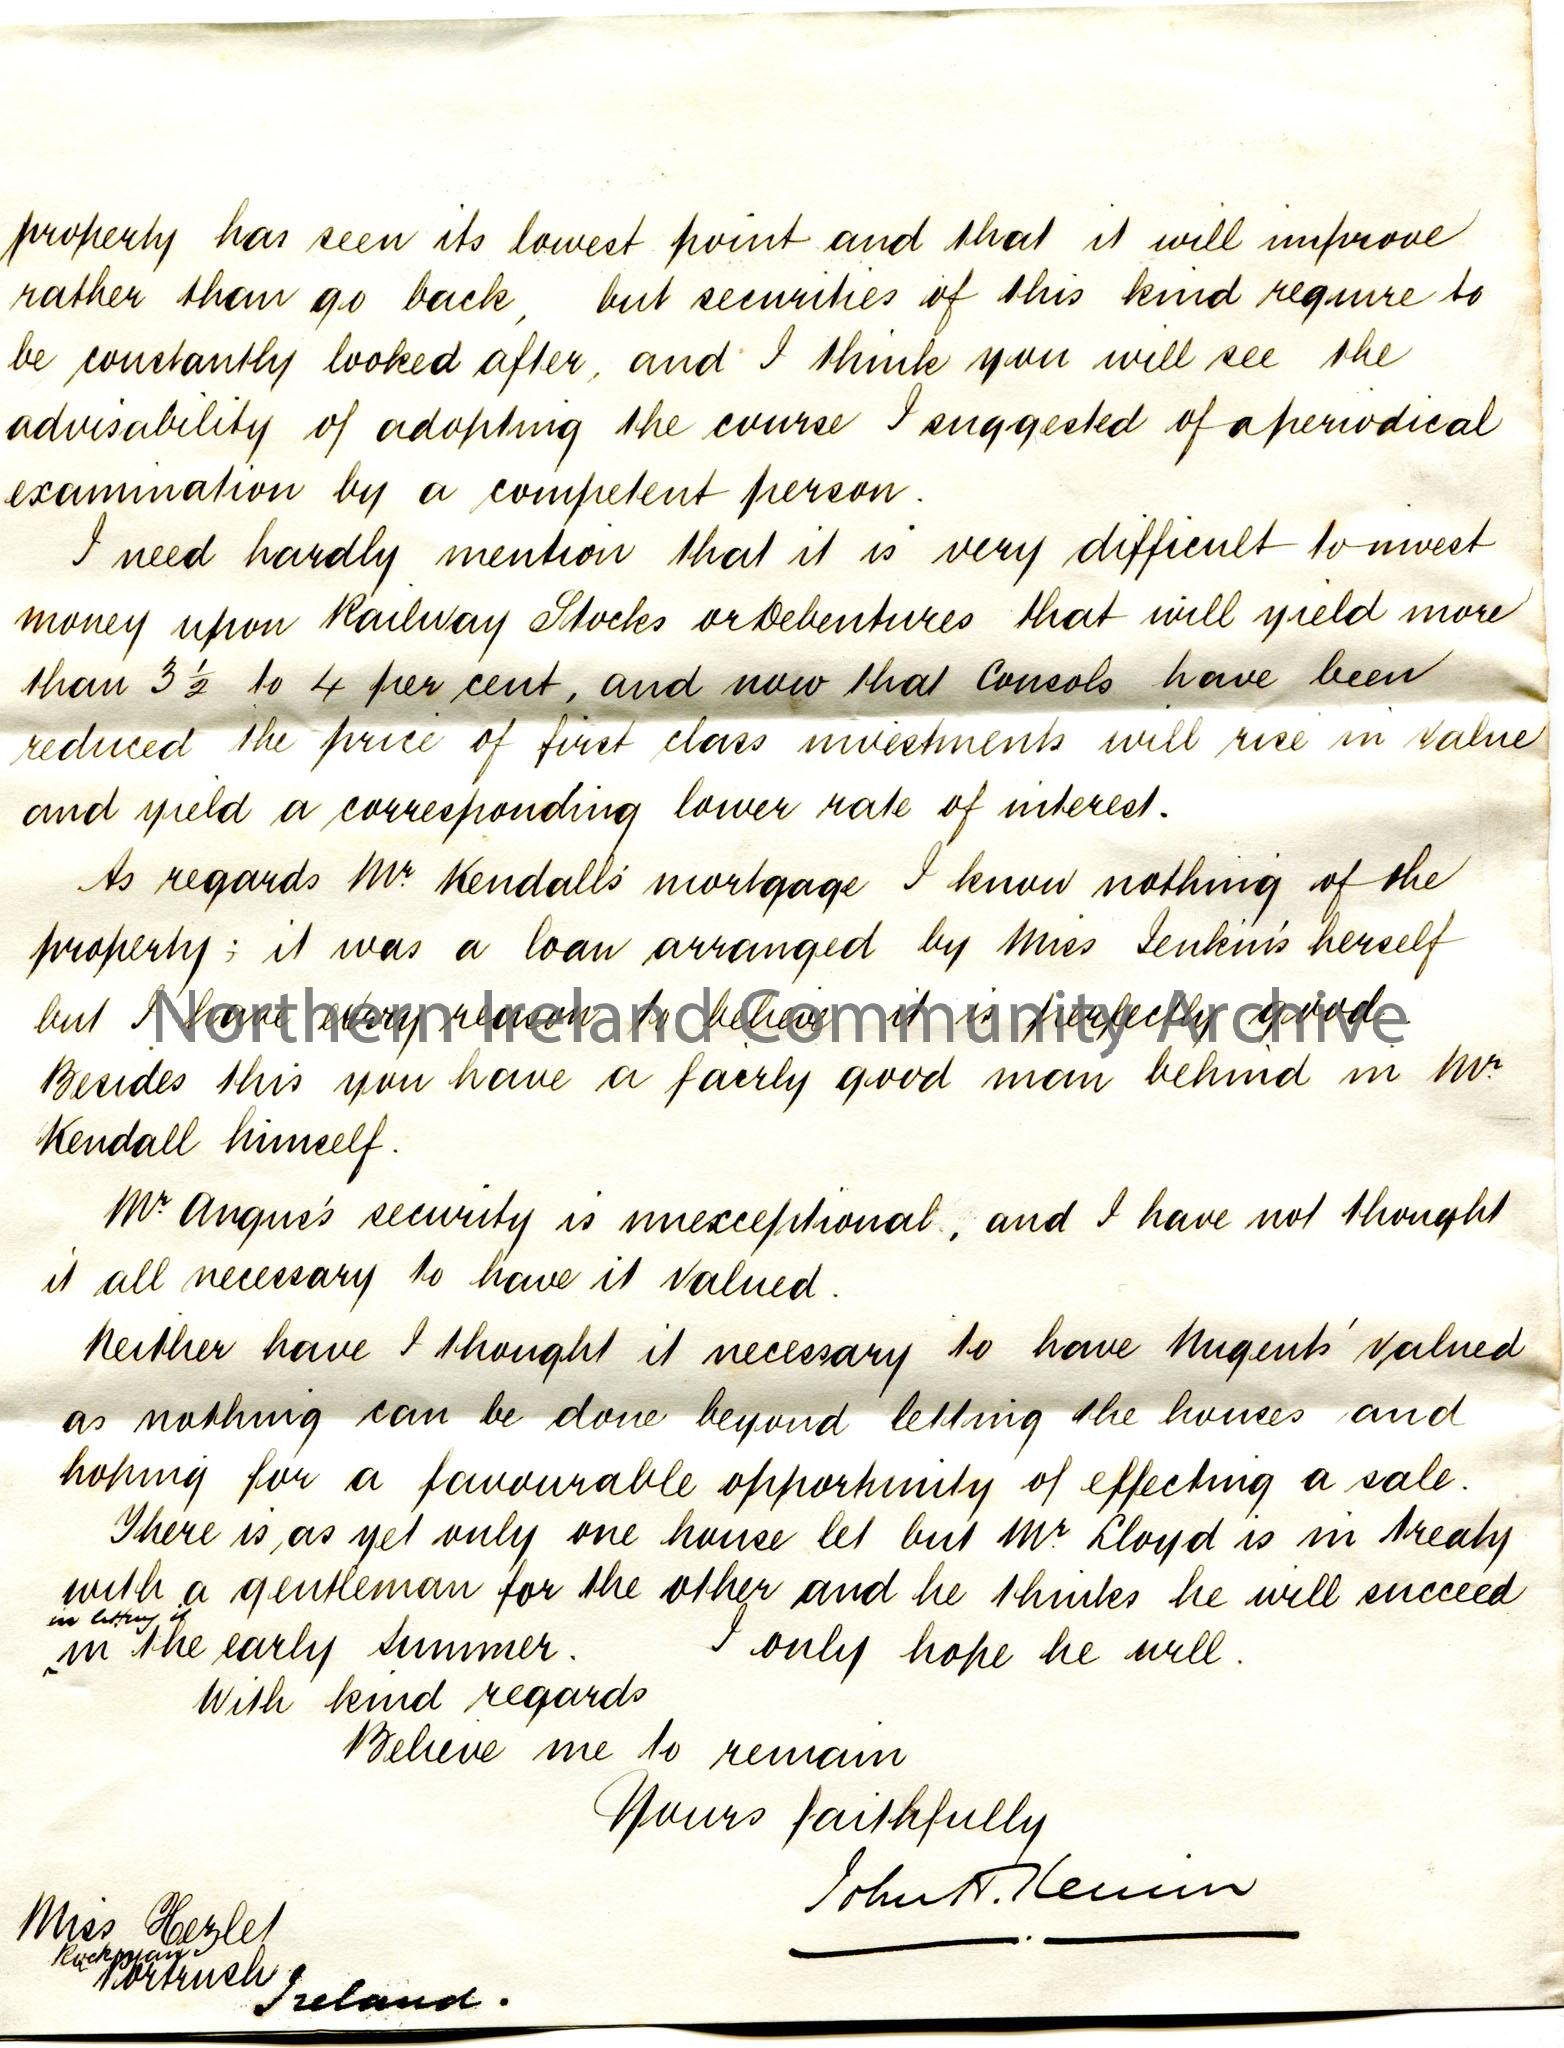 property has seen its lowest point and that it will improve
rather than go back, but securities of this kind require to
be constantly looked after, and I think you will see the
advisability of adopting the course I suggested of a periodical
examination by a competent person.
I need hardly mention that it is very difficult to invest
money upon Railway Stocks or Debentures that will yield more
than 3½ to 4 per cent, and now that Consols have been
reduced the price of first class investments will rise in value
and yield a corresponding lower rate of interest.
As regards Mr. Kendall's mortgage I know nothing of the
property; it was a loan arranged by Miss Jenkins herself
but I have every reason to believe it is perfectly good.
Northern Ireland Community Archive
Besides this you have a fairly good man behind in Mr.
Kendall himself.
Mr. Angus's security is unexceptional, and I have not thought
it all necessary to have it valued.
Neither have I thought it necessary to have Nugents' valued
as nothing can be done beyond letting the houses and
hoping for a favourable opportunity of effecting a sale.
There is, as yet only one house let but Mr. Lloyd is in treaty
with a gentleman for the other and he thinks he will succeed
in letting it
in the early summer. I only hope he will.
With kind regards
Believe me to remain
Yours faithfully
John
Miss Hezlet
Portrush
Ireland.